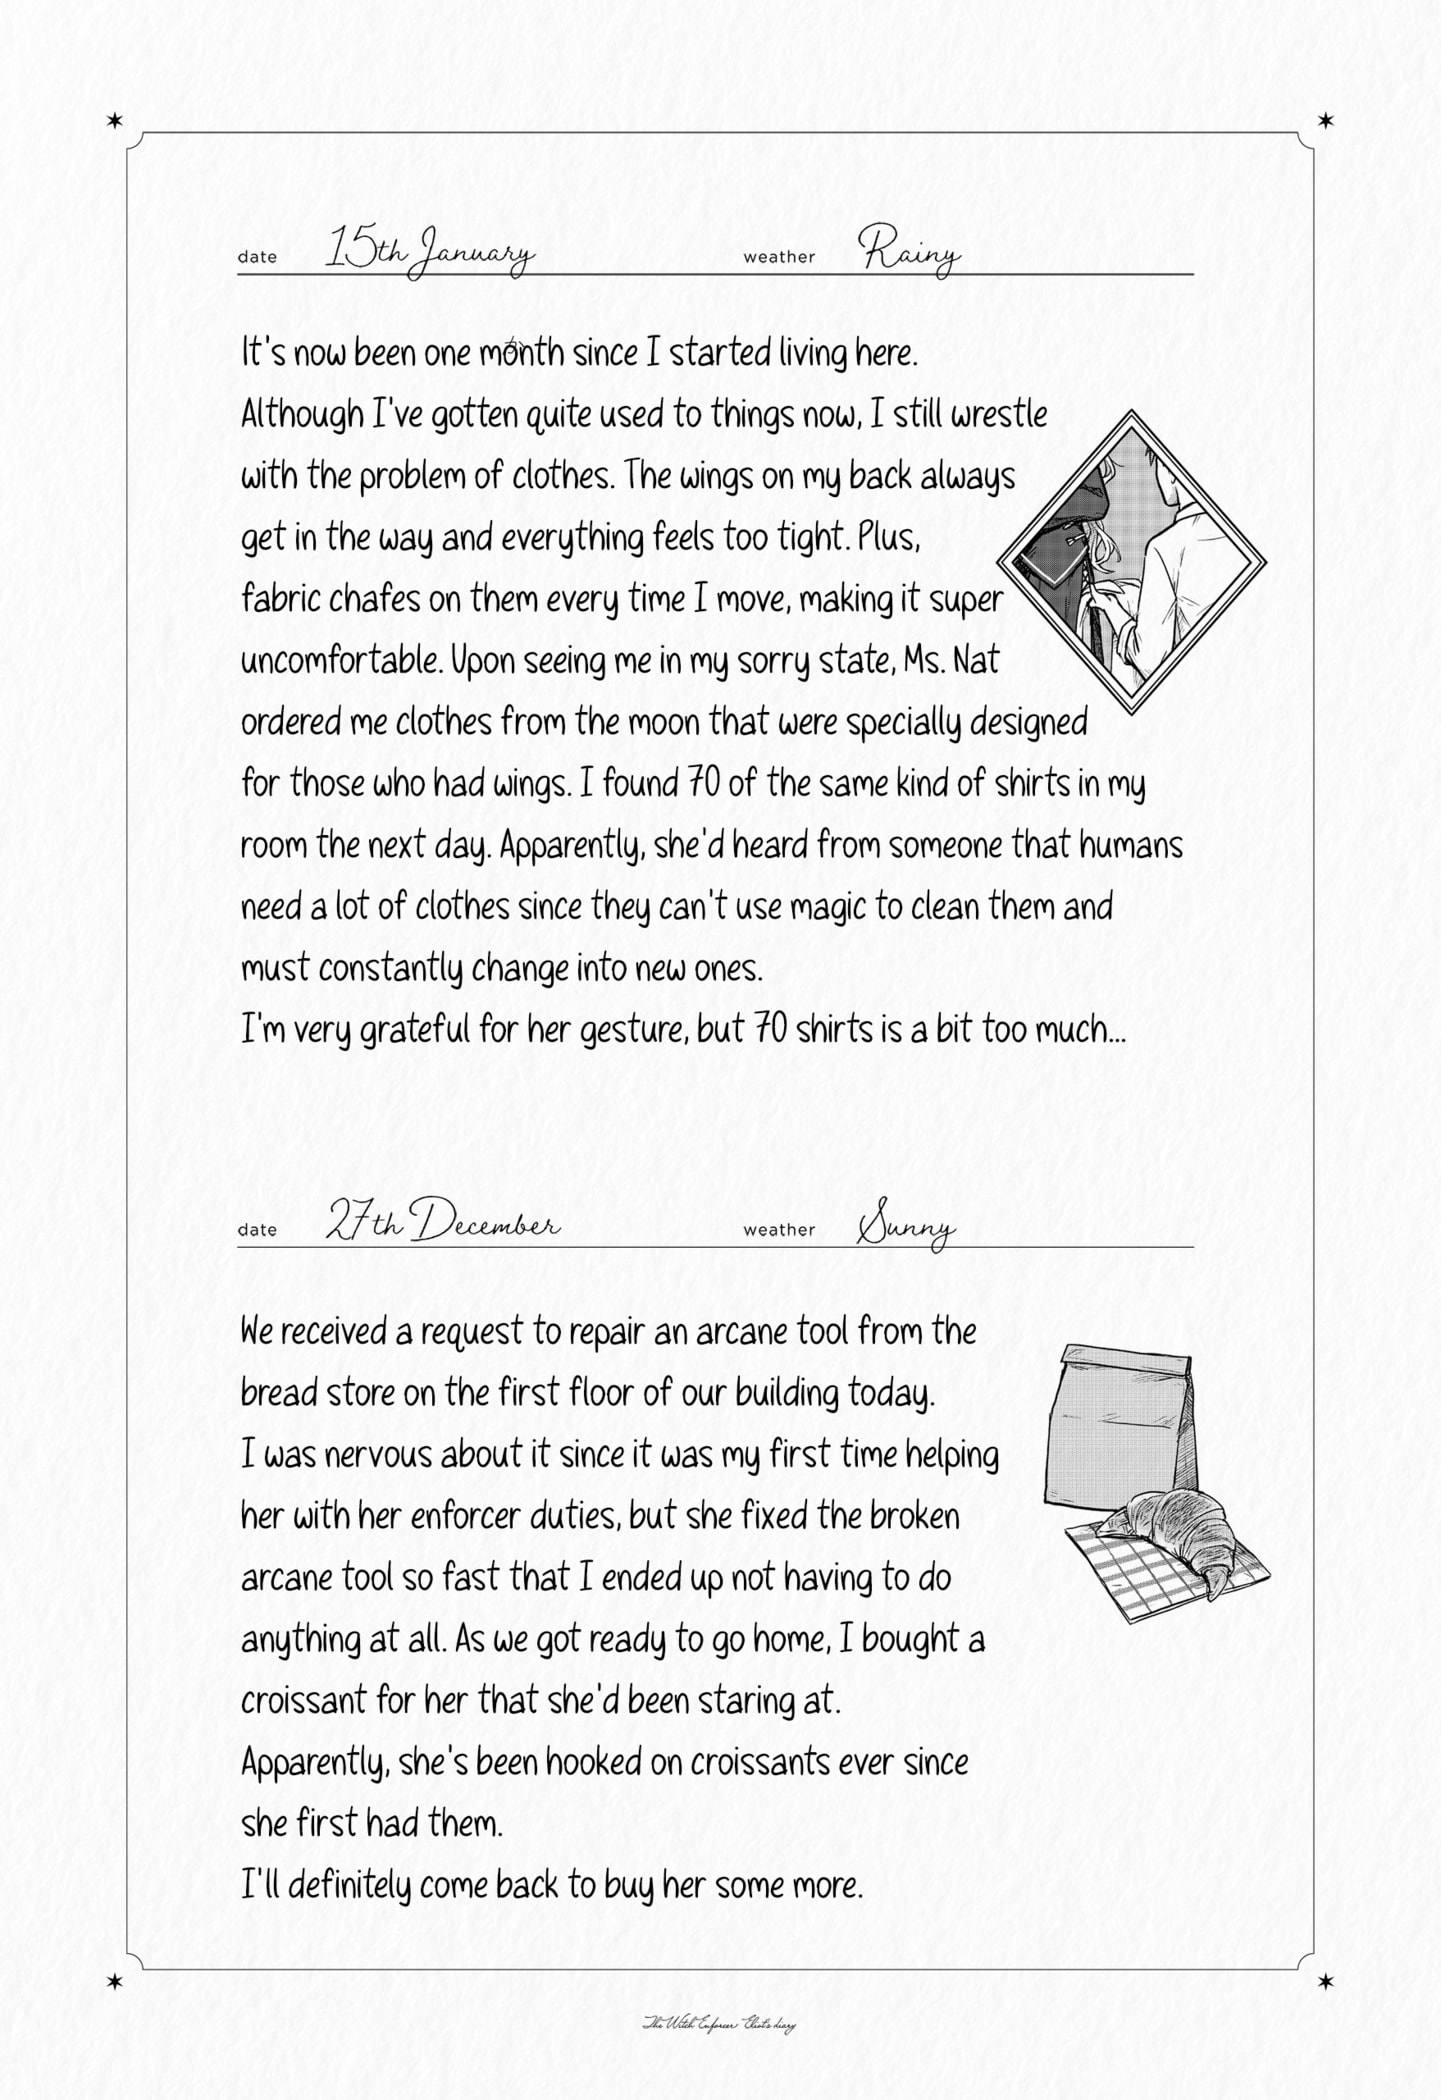 date 15th January weather Rainy
It's now been one month since I started living here.
Although I've gotten quite used to things now, I still wrestle
with the problem of clothes. The wings on my back always
get in the way and everything feels too tight. Plus,
fabric chafes on them every time I move, making it super
uncomfortable. Upon seeing me in my sorry state, Ms. Nat
ordered me clothes from the moon that were specially designed
for those who had wings. I found 70 of the same kind of shirts in my
room the next day. Apparently, she'd heard from someone that humans
need a lot of clothes since they can't use magic to clean them and
must constantly change into new ones.
I'm very grateful for her gesture, but 70 shirts is a bit too much...
date 27th December weather Sunny
We received a request to repair an arcane tool from the
bread store on the first floor of our building today.
I was nervous about it since it was my first time helping
her with her enforcer duties, but she fixed the broken
arcane tool so fast that I ended up not having to do
anything at all. As we got ready to go home, I bought a
croissant for her that she'd been staring at.
Apparently, she's been hooked on croissants ever since
she first had them.
I'll definitely come back to buy her some more.
The Witch Enforcer Eliot's diary